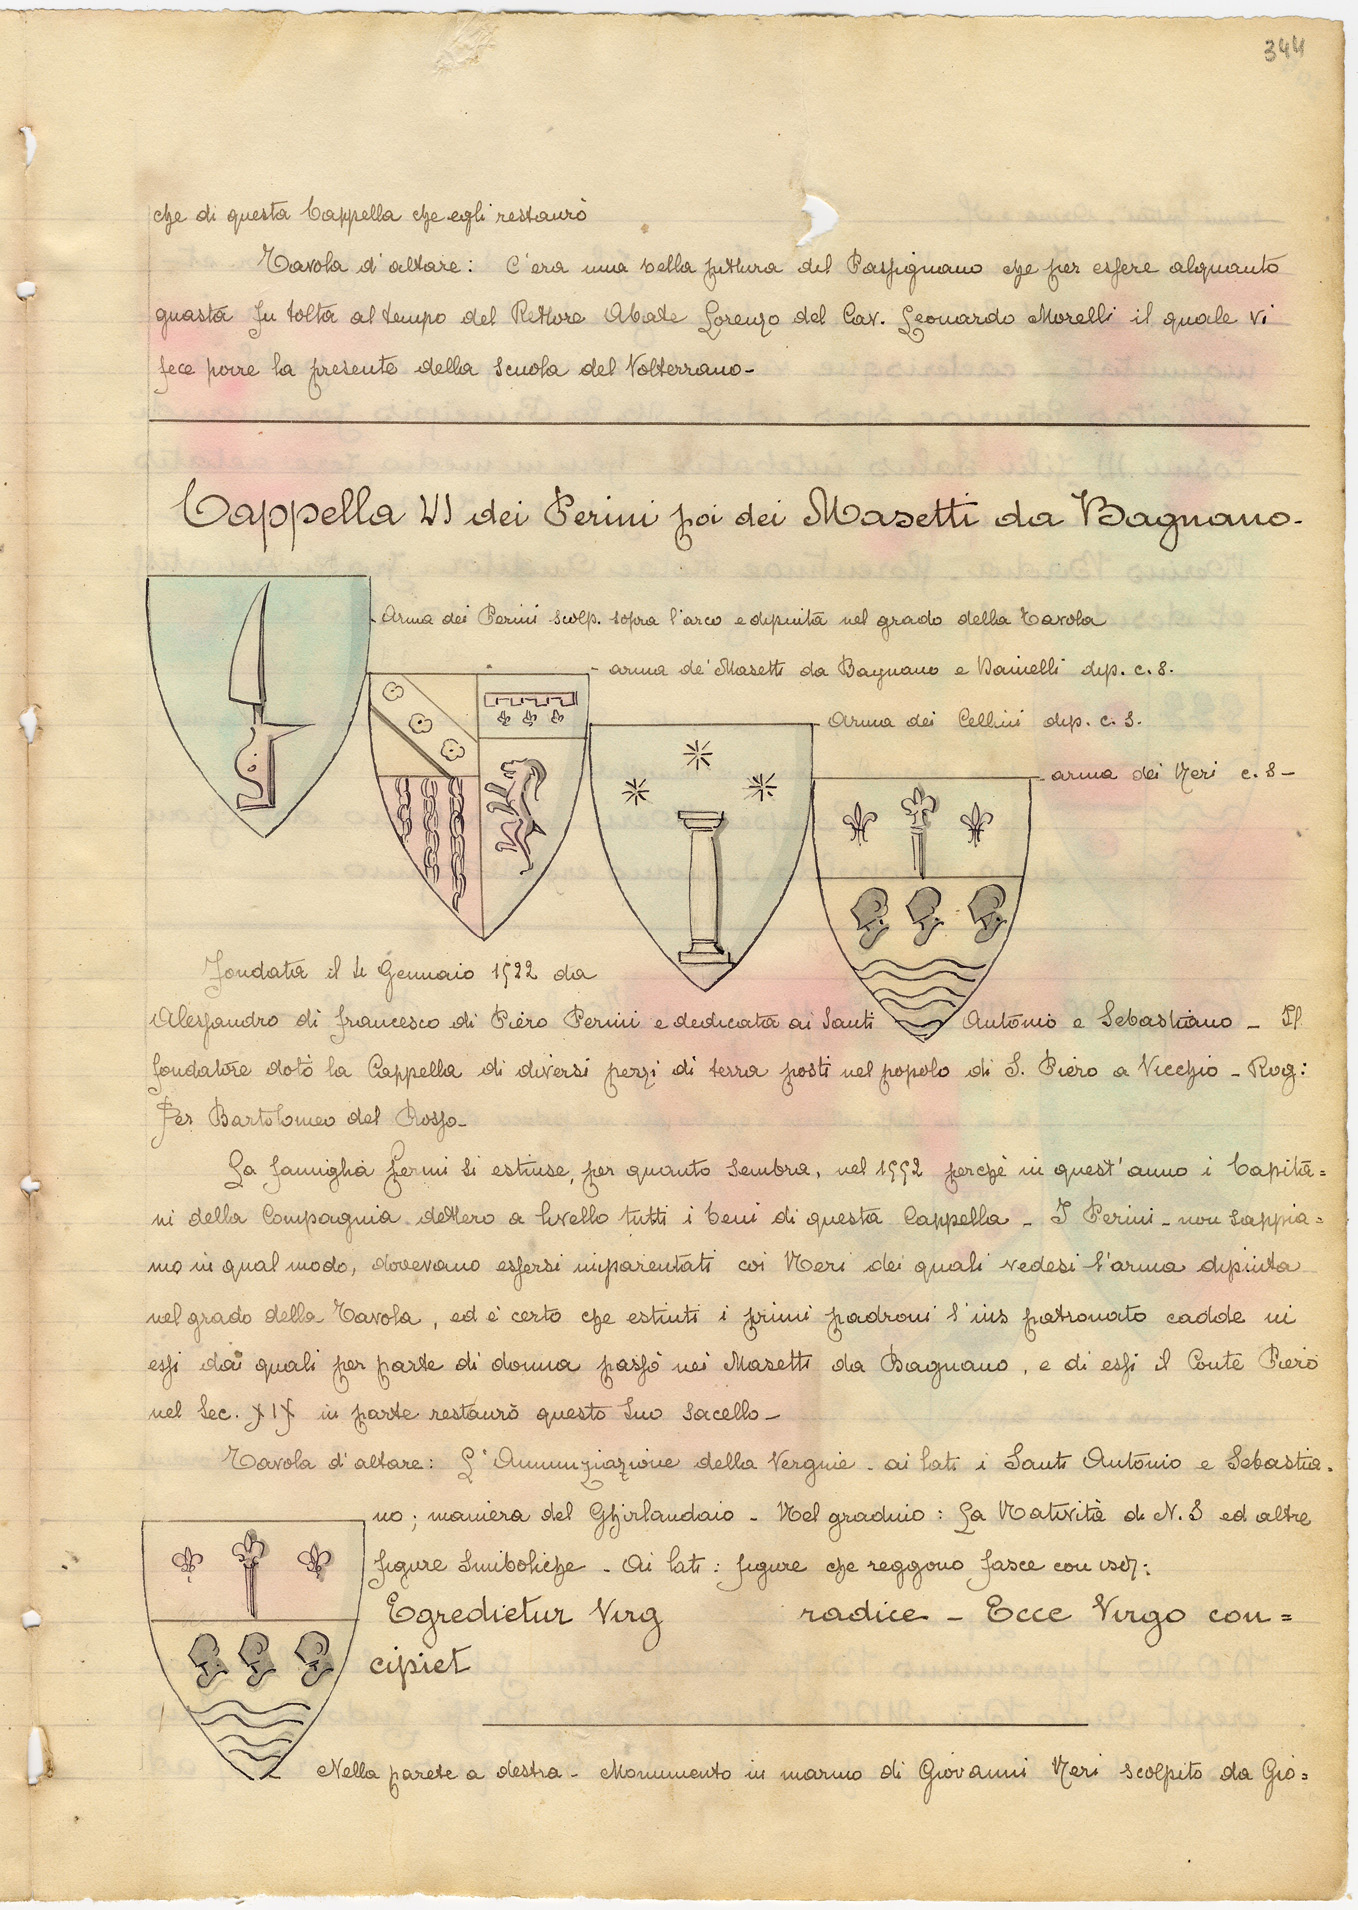 344
che di questa Cappella che egli restaurò
Tavola d'altare: C'era una bella pittura del Passignano che per essere alquanto
guasta fu tolta al tempo del Rettore Abate Lorenzo del Cav. Leonardo Morelli il quale vi
fece porre la presente della scuola del Volterrano-
Cappella VI dei Perini poi dei Masetti da Bagnano-
Arma dei Perini scolp. sopra l'arco e dipinta nel grado della Tavola
- arma de' Masetti da Bagnano e Dainelli dip. c. s.
- Arma dei Cellini dip. c. s.
- arma dei Neri c. s -
Fondata il 4 Gennaio 1522 da
Alessandro di Francesco di Piero Perini e dedicata ai Santi Antonio e Sebastiano - Il
fondatore dotò la Cappella di diversi pezzi di terra posti nel popolo di S. Piero a Vicchio - Rog:
Ser Bartolomeo del Rosso-
La famiglia Perini si estinse, per quanto sembra, nel 1552 perchè in quest'anno i Capita=
ni della Compagnia dettero a livello tutti i beni di questa Cappella - I Perini - non sappia=
mo in qual modo, dovevano essersi imparentati coi Neri dei quali vedesi l'arma dipinta
nel grado della Tavola, ed è certo che estinti i primi padroni l'ius patronato cadde in
essi dai quali per parte di donna passò nei Masetti da Bagnano, e di essi il Conte Piero
nel Sec. XIX in parte restaurò questo suo sacello-
Tavola d'altare: L'Annunziazione della Vergine - ai lati i Santi Antonio e Sebastia=
no; maniera del Ghirlandaio - Nel gradino: La Natività di N. S ed altre
figure simboliche - Ai lati: figure che reggono fasce con iscr:
Egredietur Virg radice - Ecce Virgo con=
cipiet
Nella parete a destra - Monumento in marmo di Giovanni Neri scolpito da Gio=